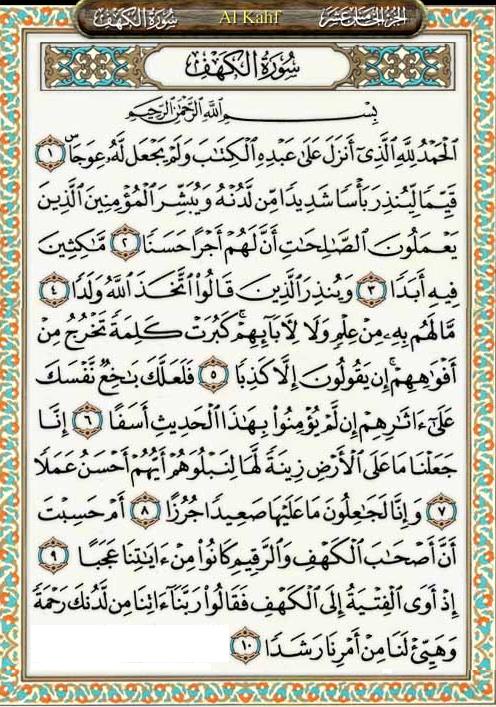 سُورَةُ الكَهْفِ Al Kahf الجزء الخامس عشر
سُورَةُ الكَهْفِ
بِسْمِ اللَّهِ الرَّحْمَٰنِ الرَّحِيمِ
ٱلْحَمْدُ لِلَّهِ ٱلَّذِىٓ أَنزَلَ عَلَىٰ عَبْدِهِ ٱلْكِتَٰبَ وَلَمْ يَجْعَل لَّهُۥ عِوَجَاۜ ١
قَيِّمًا لِّيُنذِرَ بَأْسًا شَدِيدًا مِّن لَّدُنْهُ وَيُبَشِّرَ ٱلْمُؤْمِنِينَ ٱلَّذِينَ
يَعْمَلُونَ ٱلصَّٰلِحَٰتِ أَنَّ لَهُمْ أَجْرًا حَسَنًا ٢ مَّٰكِثِينَ
فِيهِ أَبَدًا ٣ وَيُنذِرَ ٱلَّذِينَ قَالُوا۟ ٱتَّخَذَ ٱللَّهُ وَلَدًا ٤
مَّا لَهُم بِهِۦ مِنْ عِلْمٍ وَلَا لِأَبَآئِهِمْ ۚ كَبُرَتْ كَلِمَةً تَخْرُجُ مِنْ
أَفْوَٰهِهِمْ ۚ إِن يَقُولُونَ إِلَّا كَذِبًا ٥ فَلَعَلَّكَ بَٰخِعٌ نَّفْسَكَ
عَلَىٰٓ ءَاثَٰرِهِمْ إِن لَّمْ يُؤْمِنُوا۟ بِهَٰذَا ٱلْحَدِيثِ أَسَفًا ٦ إِنَّا
جَعَلْنَا مَا عَلَى ٱلْأَرْضِ زِينَةً لَّهَا لِنَبْلُوَهُمْ أَيُّهُمْ أَحْسَنُ عَمَلًا
٧ وَإِنَّا لَجَٰعِلُونَ مَا عَلَيْهَا صَعِيدًا جُرُزًا ٨ أَمْ حَسِبْتَ
أَنَّ أَصْحَٰبَ ٱلْكَهْفِ وَٱلرَّقِيمِ كَانُوا۟ مِنْ ءَايَٰتِنَا عَجَبًا ٩
إِذْ أَوَى ٱلْفِتْيَةُ إِلَى ٱلْكَهْفِ فَقَالُوا۟ رَبَّنَآ ءَاتِنَا مِن لَّدُنكَ رَحْمَةً
وَهَيِّئْ لَنَا مِنْ أَمْرِنَا رَشَدًا ١٠